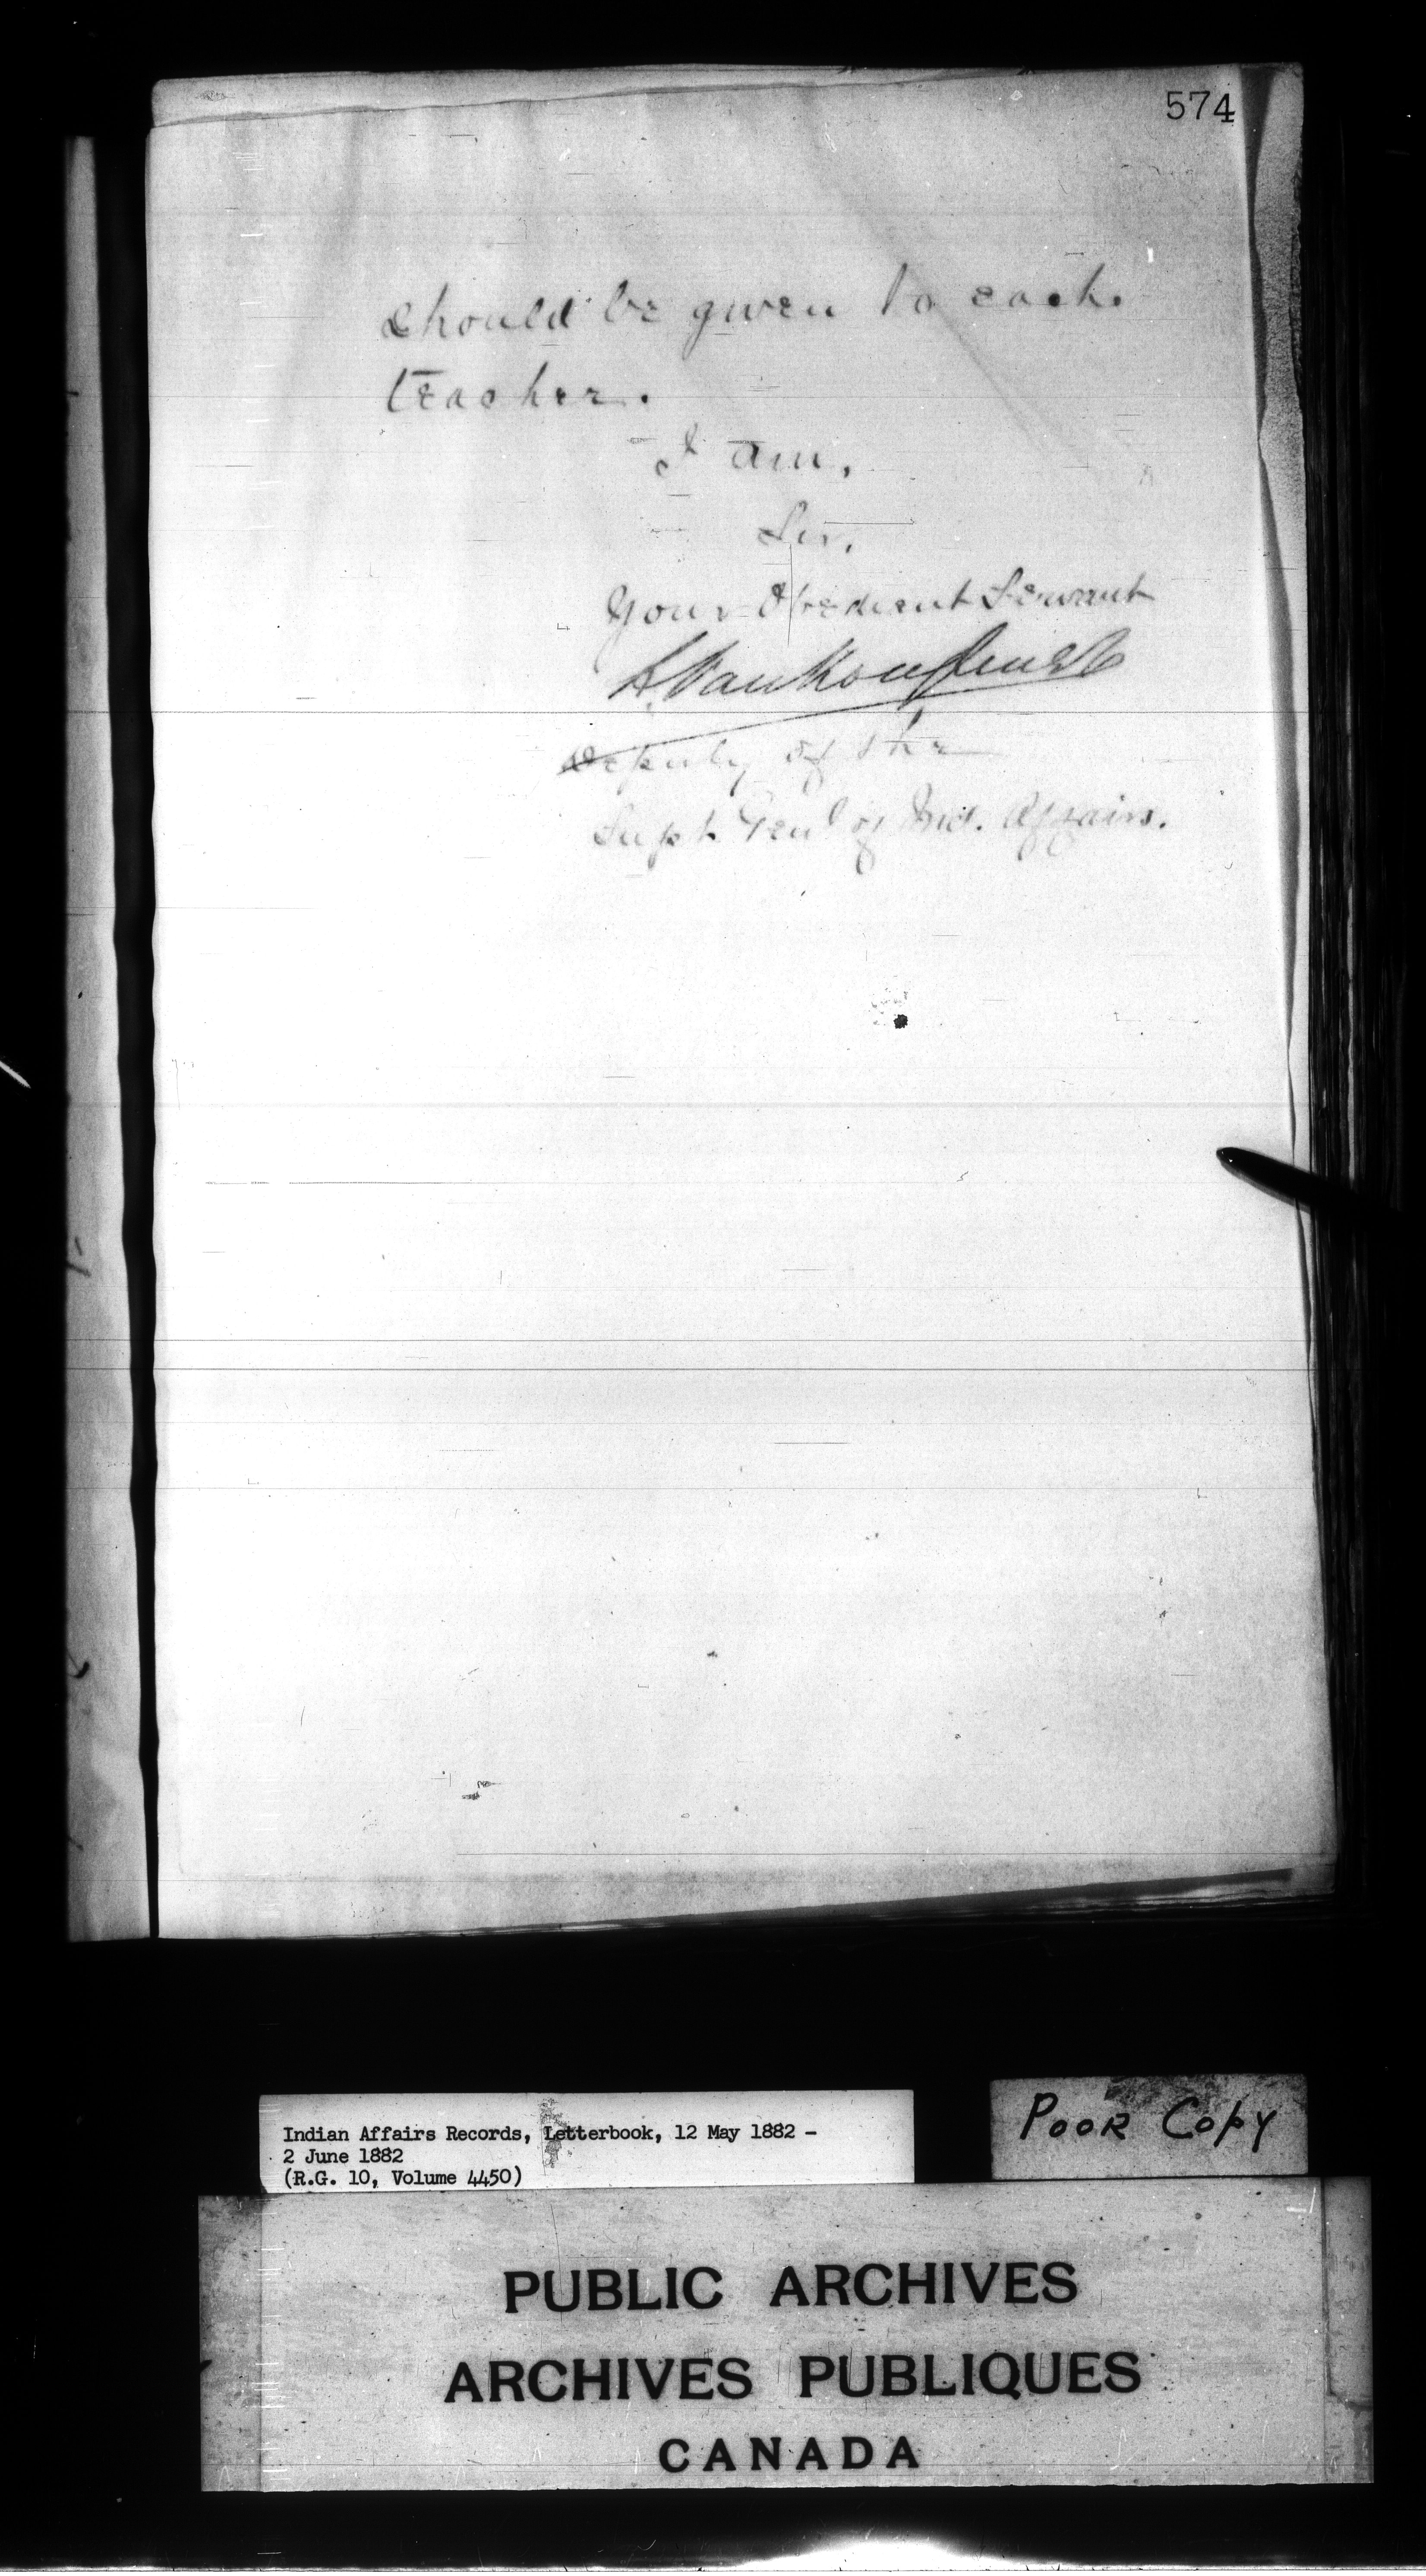 574
should be given to each
teacher.
I am,
Sir,
Your Obedient Servant
L. VanKoughnet
Deputy of the
Supt. Genl of Ind. Affairs.
Indian Affairs Records, Letterbook, 12 May 1882 -
2 June 1882
(R.G. 10, Volume 4450)
POOR COPY
PUBLIC ARCHIVES
ARCHIVES PUBLIQUES
CANADA